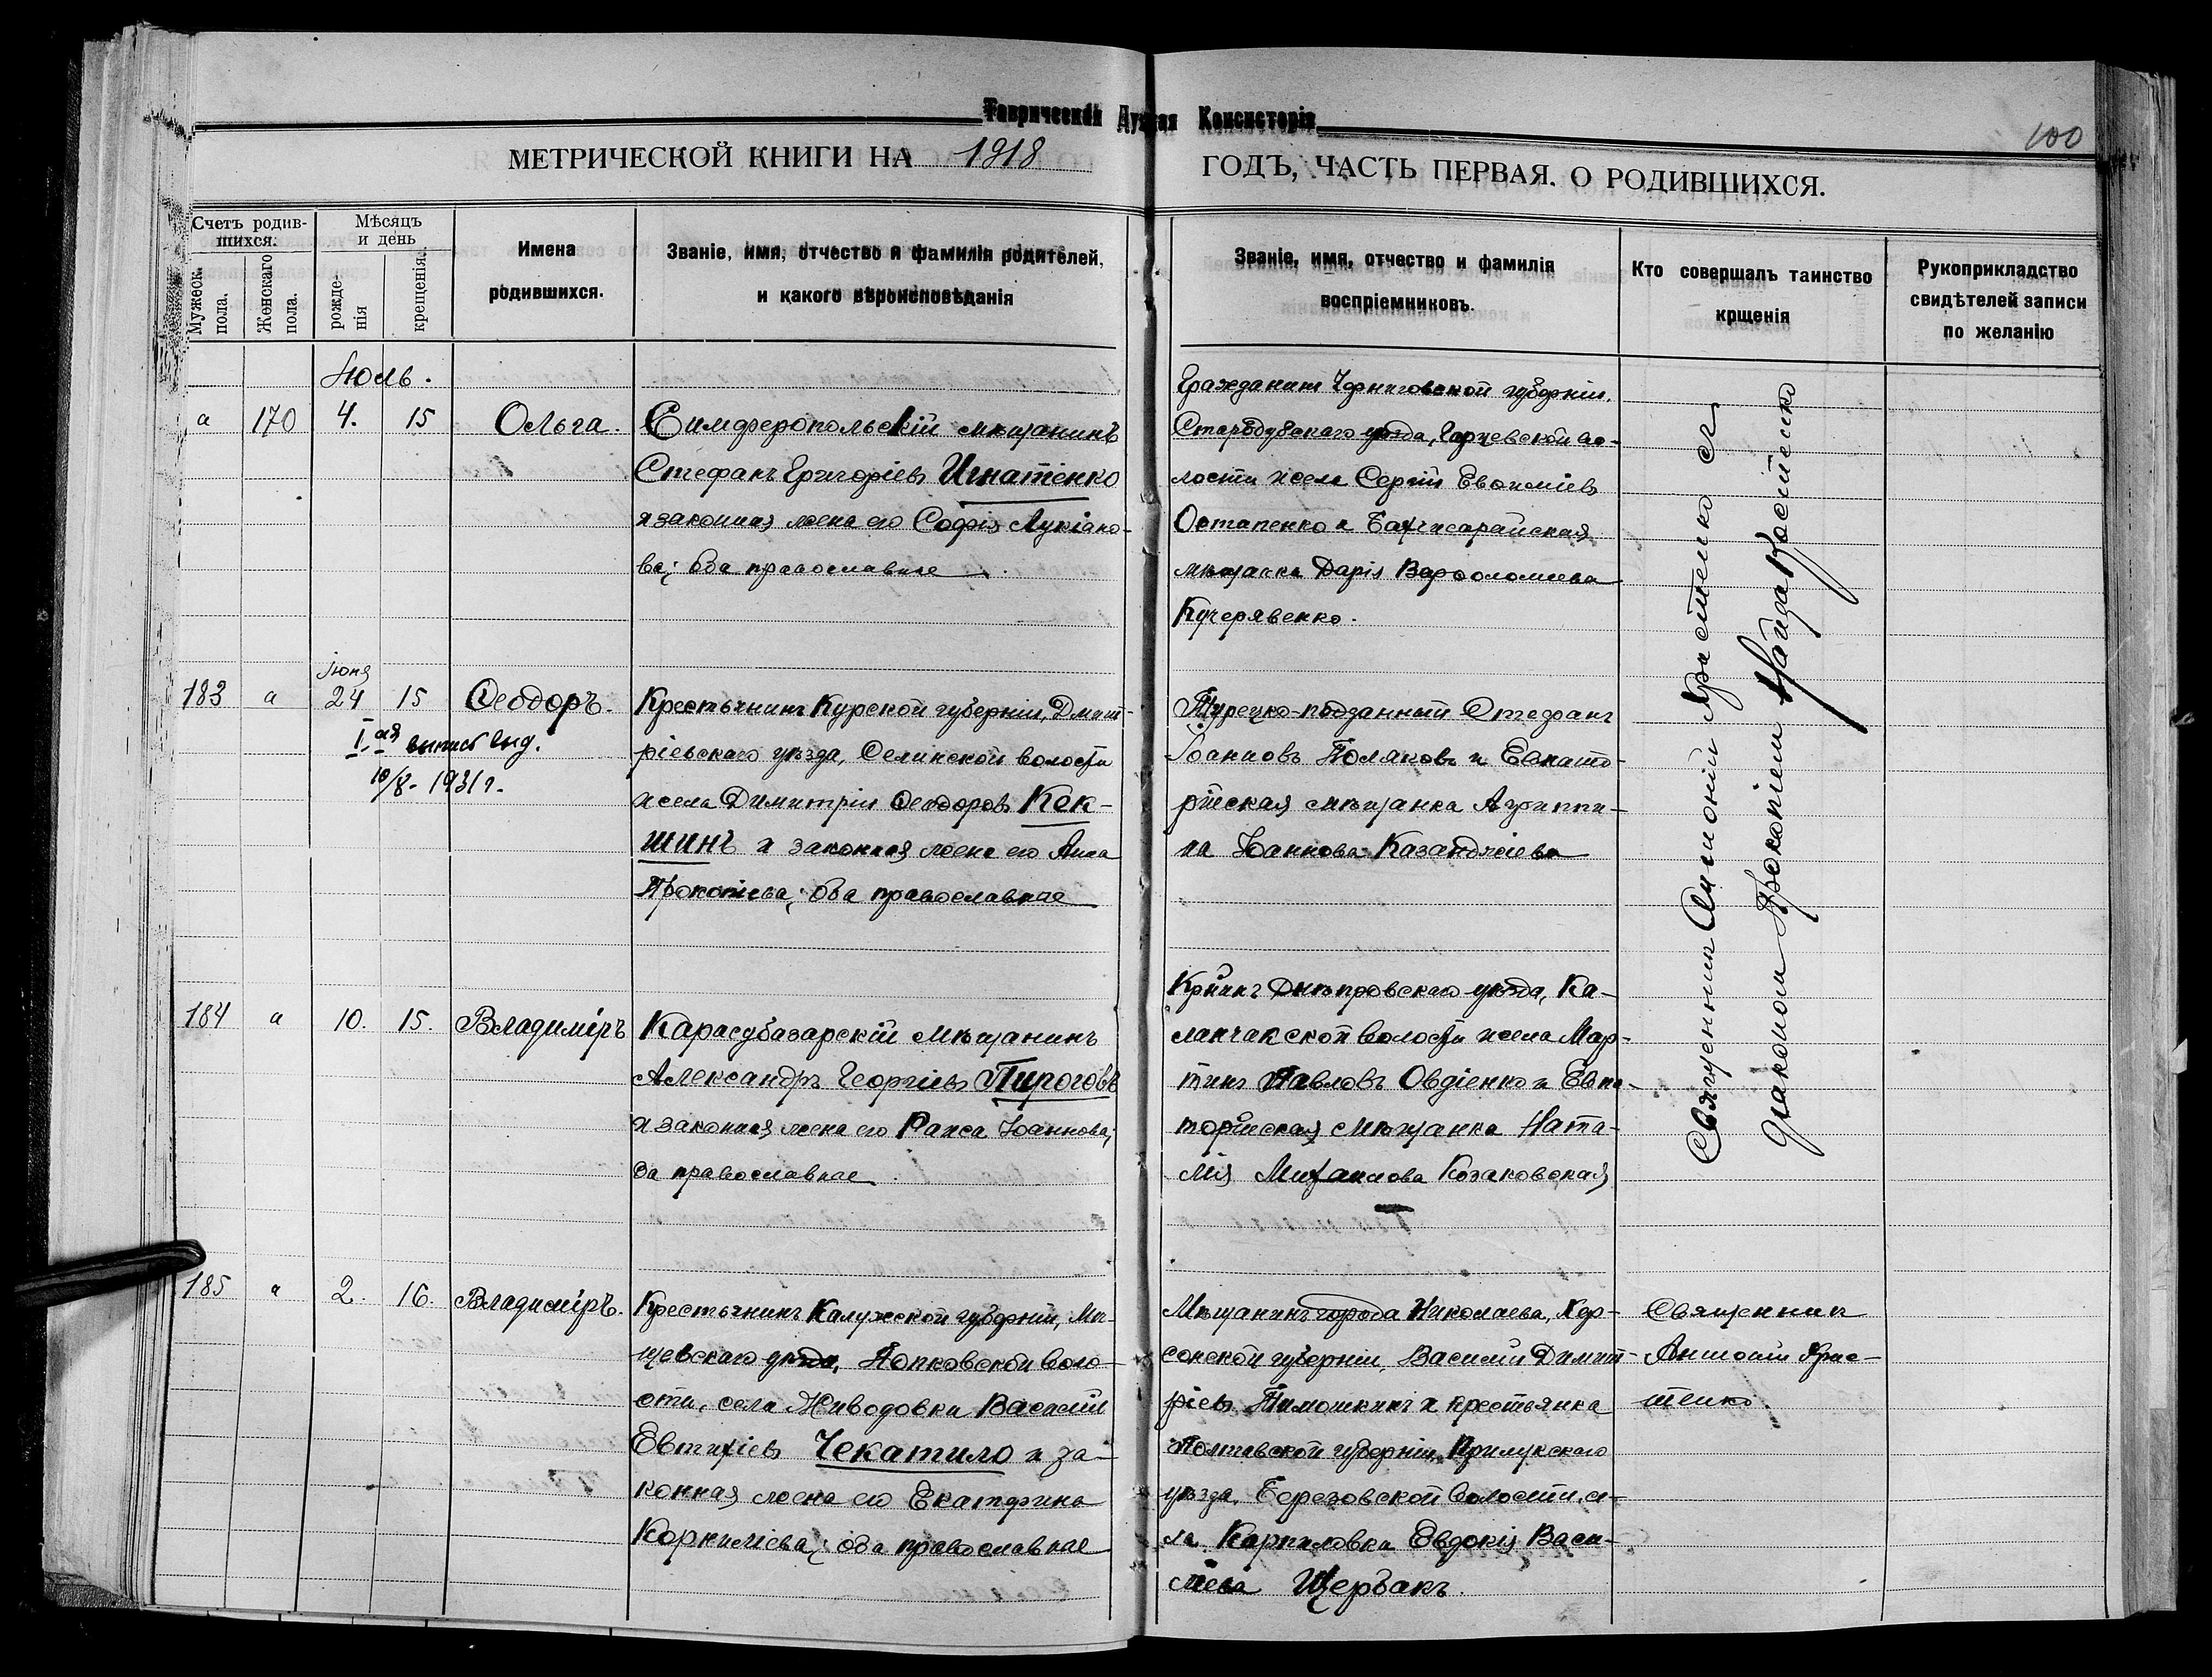 Таврической Духовная Консисторія
100
МЕТРИЧЕСКОЙ КНИГИ НА 1918
ГОДЪ, ЧАСТЬ ПЕРВАЯ. О РОДИВШИХСЯ.
Счетъ родив-
шихся.
Мужеск. пола.
Женскаго пола.
Мѣсяцъ
и день
рожде-
нія
крещенія.
Имена
родившихся.
Званіе, имя, отчество и фамилія родителей,
и какого вѣроисповѣданія
Званіе, имя, отчество и фамилія
воспріемниковъ.
Кто совершалъ таинство
крщенія
Рукоприкладство
свидѣтелей записи
по желанію
Іюль.
а 170 4. 15 Ольга.
Симферопольскій мѣщанинъ
Стефанъ Григоріевъ Игнатенко
и законная жена его Софія Лукіано-
ва; оба православные
Гражданин Черниговской губерніи,
Стародубскаго уѣзда, во-
лости и села Сергій Евѳиміевъ
Остапенко и Бахчисарайская
мѣщанка Дарія Варѳоломеева
Кучерявенко.
Іюня
183 а 24 15 Ѳеодоръ.
I-ая выпись выд.
10/8-1931 г.
Крестьянинъ Курской губерніи, Дмит-
ріевскаго уѣзда, Селинской волости
и села Димитрій Ѳеодоровъ Кек-
шинъ и законная жена его Анна
Прокопіева; оба православные
Турецко-подданный Стефанъ
Іоанновъ Поляковъ и Евпато-
рійская мѣщанка Агриппи-
на Іоаннова Казанджіева
184 а 10. 15. Владиміръ
Карасубазарскій мѣщанинъ
Александръ Георгіевъ Пироговъ
и законная жена его Раиса Іоаннова;
оба православные
Кр-нинъ Днѣпровскаго уѣзда, Ка-
ланчакской волости и села Мар-
тинъ Павловъ Овдіенко и Евпа-
торійская мѣщанка Ната-
лія Михаилова Козаковская
Священник Антоній Христенко с
діакономъ Прокопіемъ Гайдакостенко
185 а 2. 16. Владиміръ.
Крестьянинъ Калужской губерніи, Ме-
щевскаго уѣзда, Попковской воло-
сти, села Живодовки Василій
Евтихіевъ Чекатило и за-
конная жена его Екатерина
Корниліева; оба православные
Мѣщанинъ города Николаева, Хер-
сонской губерніи, Василій Димит-
ріевъ Тимошкинъ и крестьянка
Полтавской губерніи, Прилукскаго
уѣзда, Березовской волости, се-
ла Карпиловки Евдокія Васи-
ліева Щербакъ.
Священник
Антоній Хрис-
тенко